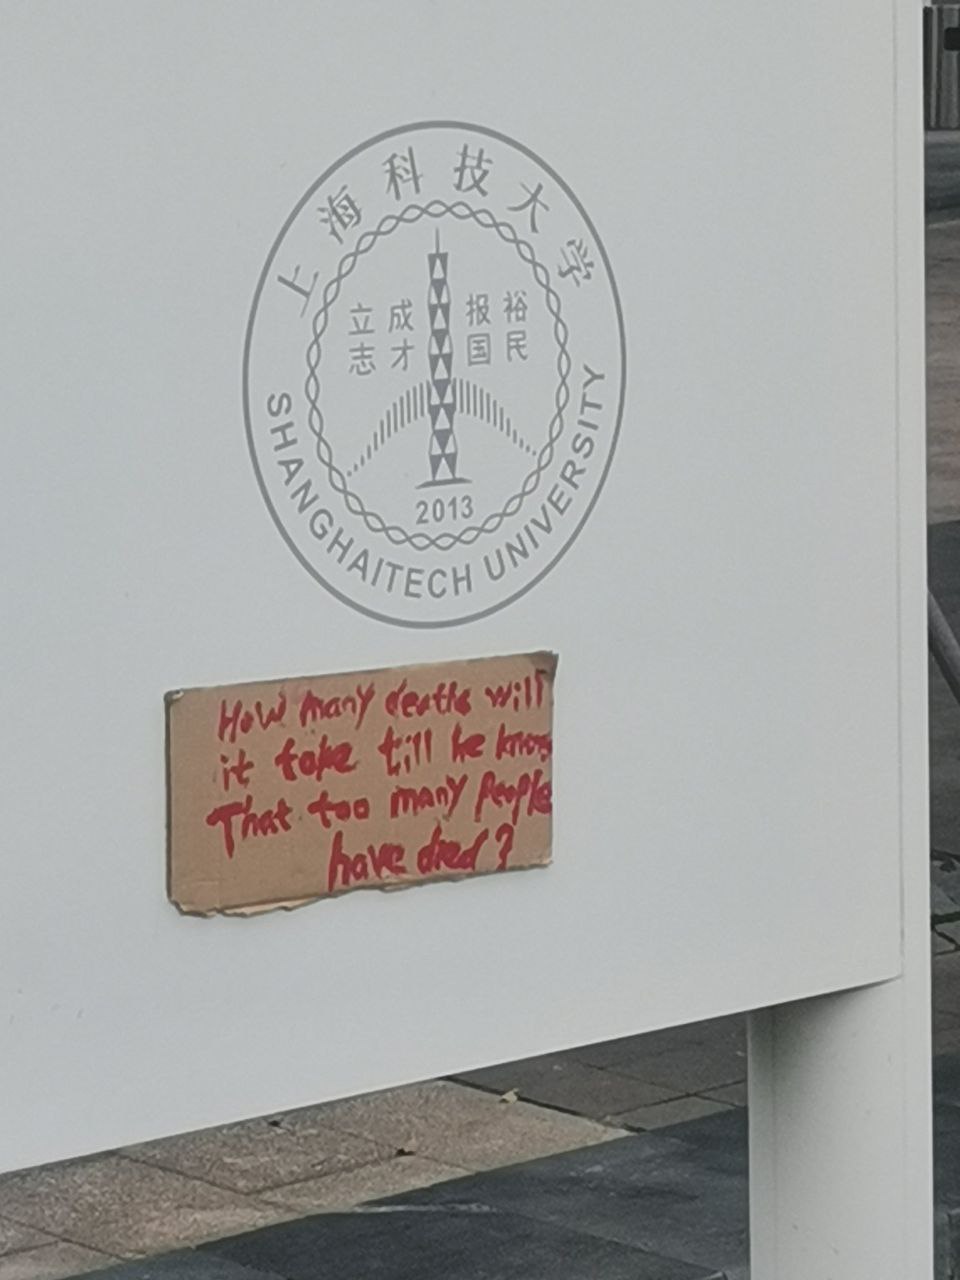 上海科技大学
立志 成才 报国 裕民
2013
SHANGHAITECH UNIVERSITY
How many deaths will
it take till he knows
That too many people
have died?